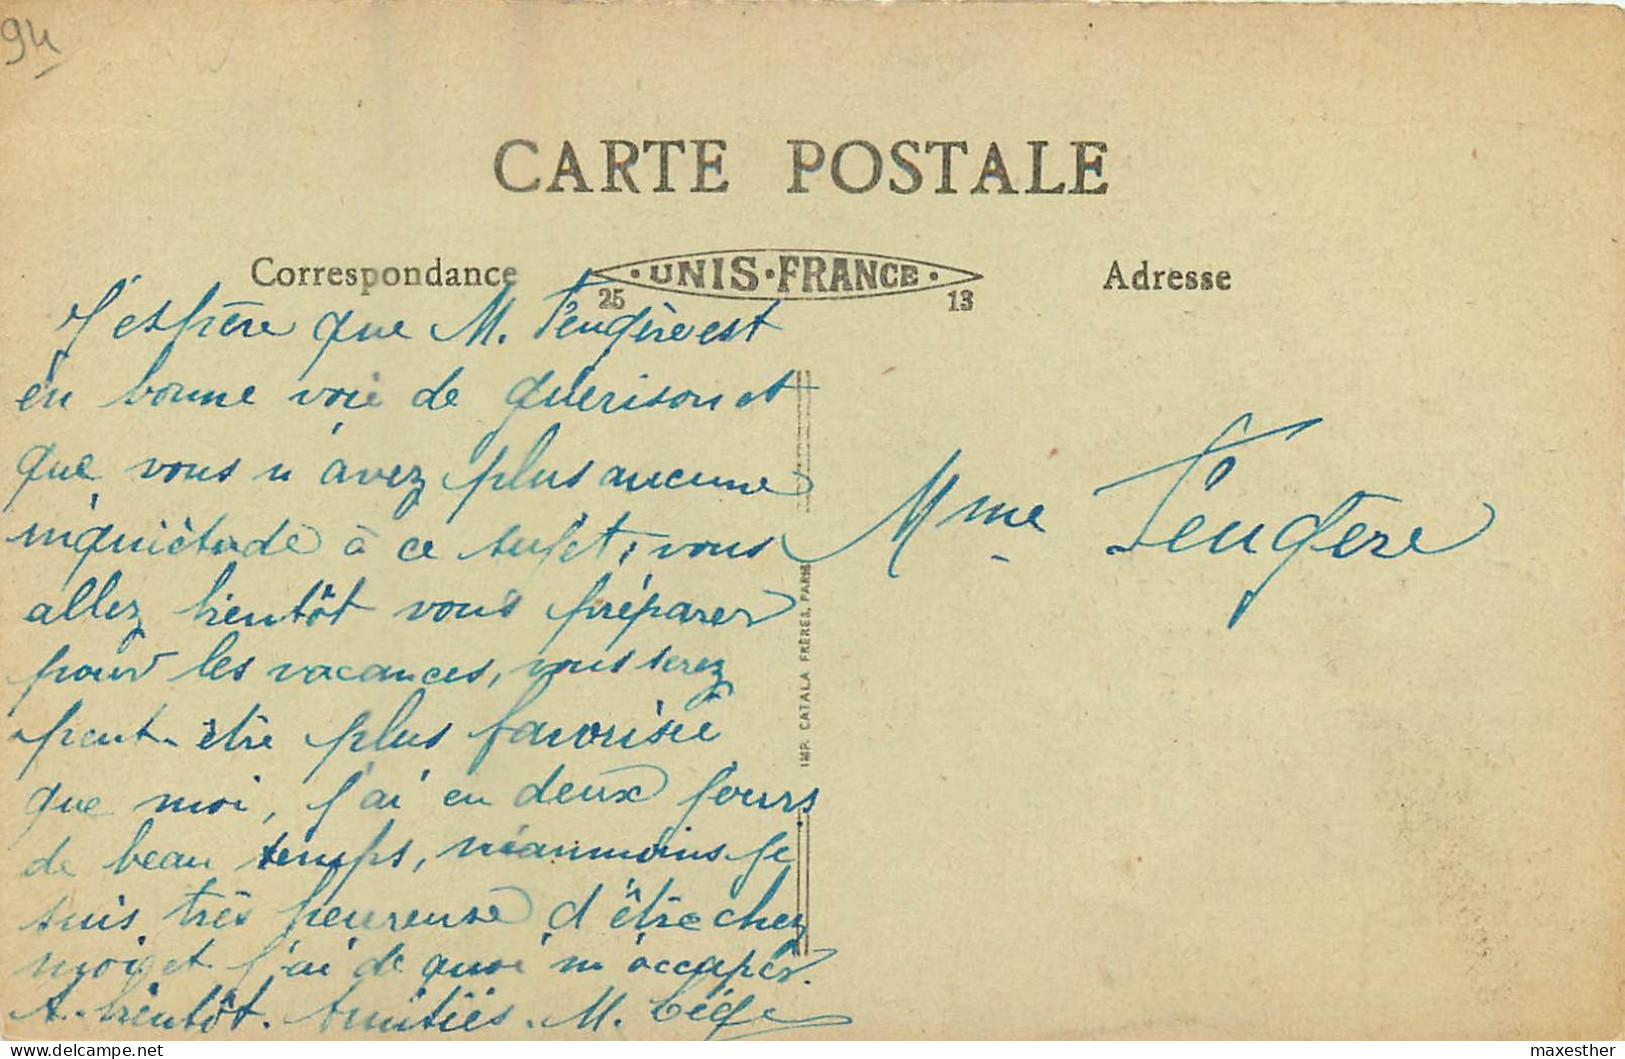 94
CARTE POSTALE
Correspondance
·UNIS·FRANCE·
25 13
Adresse
J'espère que M. Feugère est
en bonne voie de guérison et
que vous n'avez plus aucune
inquiètude à ce sujet; vous
allez bientôt vous préparer
pour les vacances, vous serez
peut-être plus favorisée
que moi, j'ai eu deux jours
de beau temps, néanmoins je
suis très heureuse d'être chez
moi et j'ai de quoi m'occuper.
A bientôt. Amitiés. M.
Mme Feugère
IMP. CATALA FRÈRES, PARIS
delcampe.net
maxesther